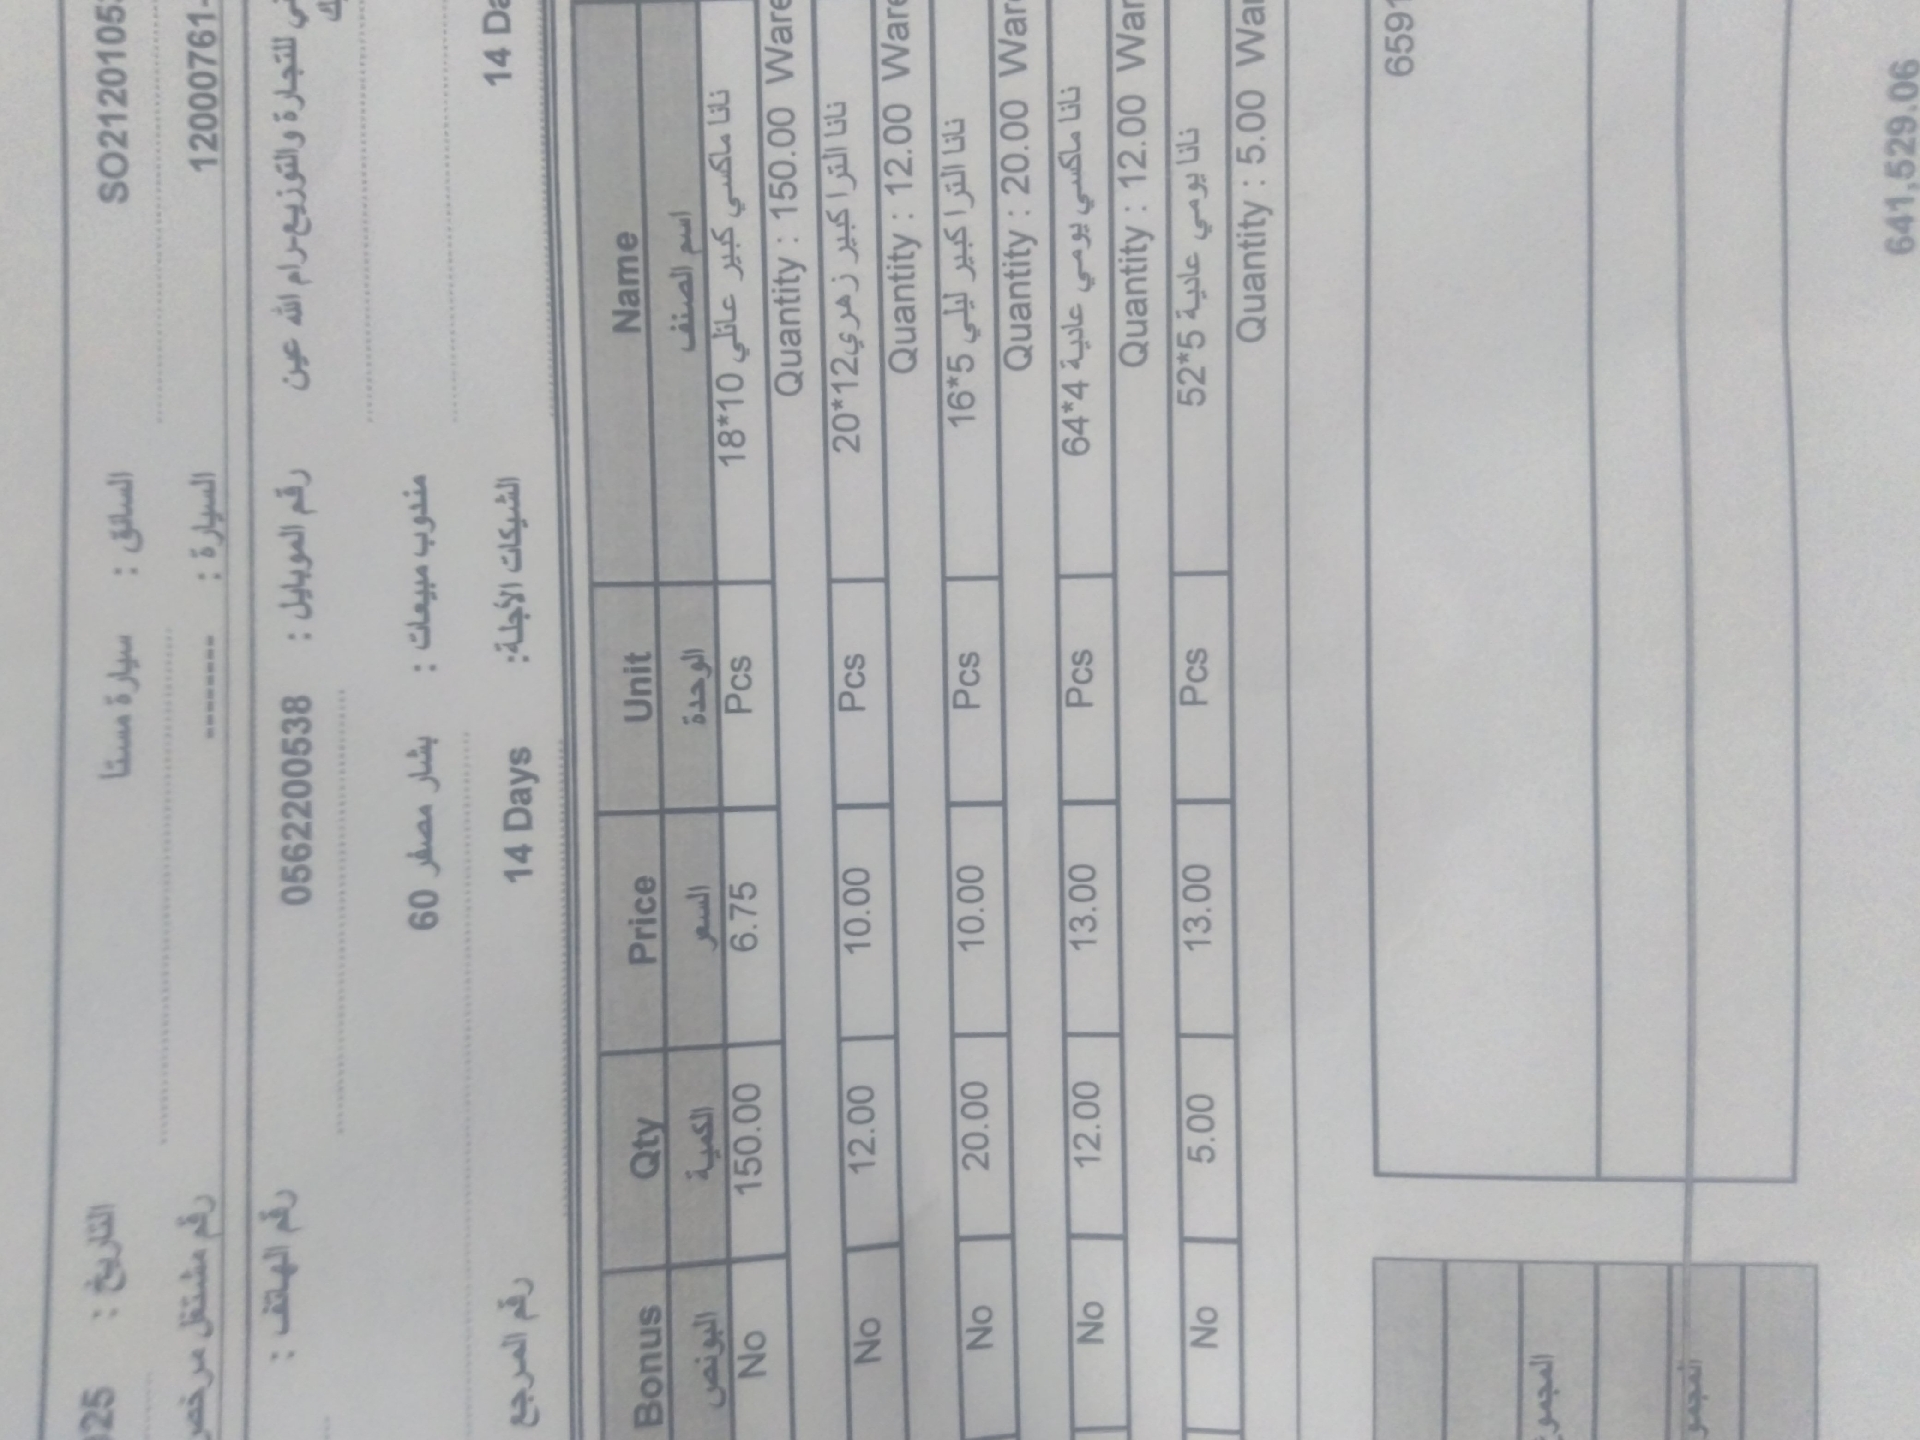 SO21201053
السائق :
سيارة مستا
التاريخ :
025
120007761-
السيارة :
--------
رقم مشتغل مرخص
للتجارة والتوزيع-رام الله عين
رقم الموبايل :
0562200538
رقم الهاتف :
مندوب مبيعات :
بشار مصفر 60
14 Da
الشيكات الآجلة:
14 Days
رقم المرجع
Bonus Qty Price Unit Name
البونص الكمية السعر الوحدة اسم الصنف
No 150.00 6.75 Pcs نانا ماكسي كبير عائلي 10*18
Quantity : 150.00 Ware
No 12.00 10.00 Pcs نانا الترا كبير زهري12*20
Quantity : 12.00 Ware
No 20.00 10.00 Pcs نانا الترا كبير ليلي 5*16
Quantity : 20.00 Ware
No 12.00 13.00 Pcs نانا ماكسي يومي عادية 4*64
Quantity : 12.00 War
No 5.00 13.00 Pcs نانا يومي عادية 5*52
Quantity : 5.00 War
6591
المجمو
المجمو
641,529.06